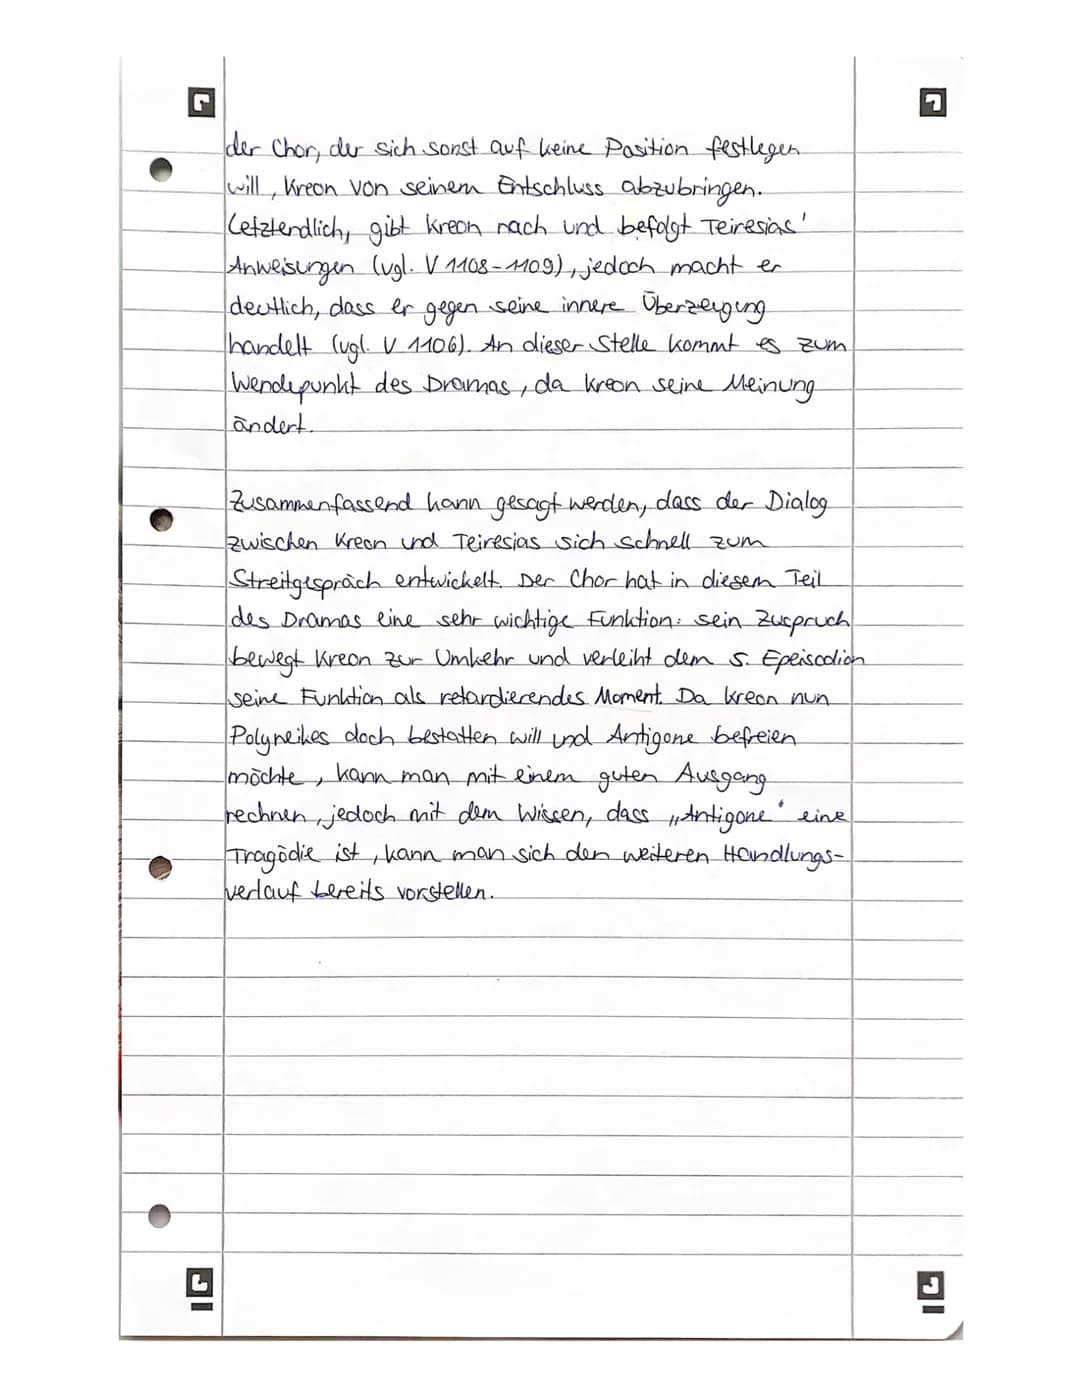 der Chor, der sich sonst auf keine Position festlegen
will, Kreon von seinem Entschluss abzubringen.
Letztendlich, gibt Kreon nach und befolgt Teiresias'
Anweisungen (vgl. V 1108-1109), jedoch macht er
deutlich, dass er gegen seine innere Überzeugung
handelt (vgl. V 1106). An dieser Stelle kommt es zum
Wendepunkt des Dramas, da Kreon seine Meinung
ändert.
Zusammenfassend kann gesagt werden, dass der Dialog
zwischen Kreon und Teiresias sich schnell zum
Streitgespräch entwickelt. Der Chor hat in diesem Teil
des Dramas eine sehr wichtige Funktion: sein Zuspruch
bewegt Kreon zur Umkehr und verleiht dem 5. Epeisodion
seine Funktion als retardierendes Moment. Da Kreon nun
Polyneikes doch bestatten will und Antigone befreien
möchte, kann man mit einem guten Ausgang
rechnen, jedoch mit dem Wissen, dass „Antigone“ eine
Tragödie ist, kann man sich den weiteren Handlungs-
verlauf bereits vorstellen.